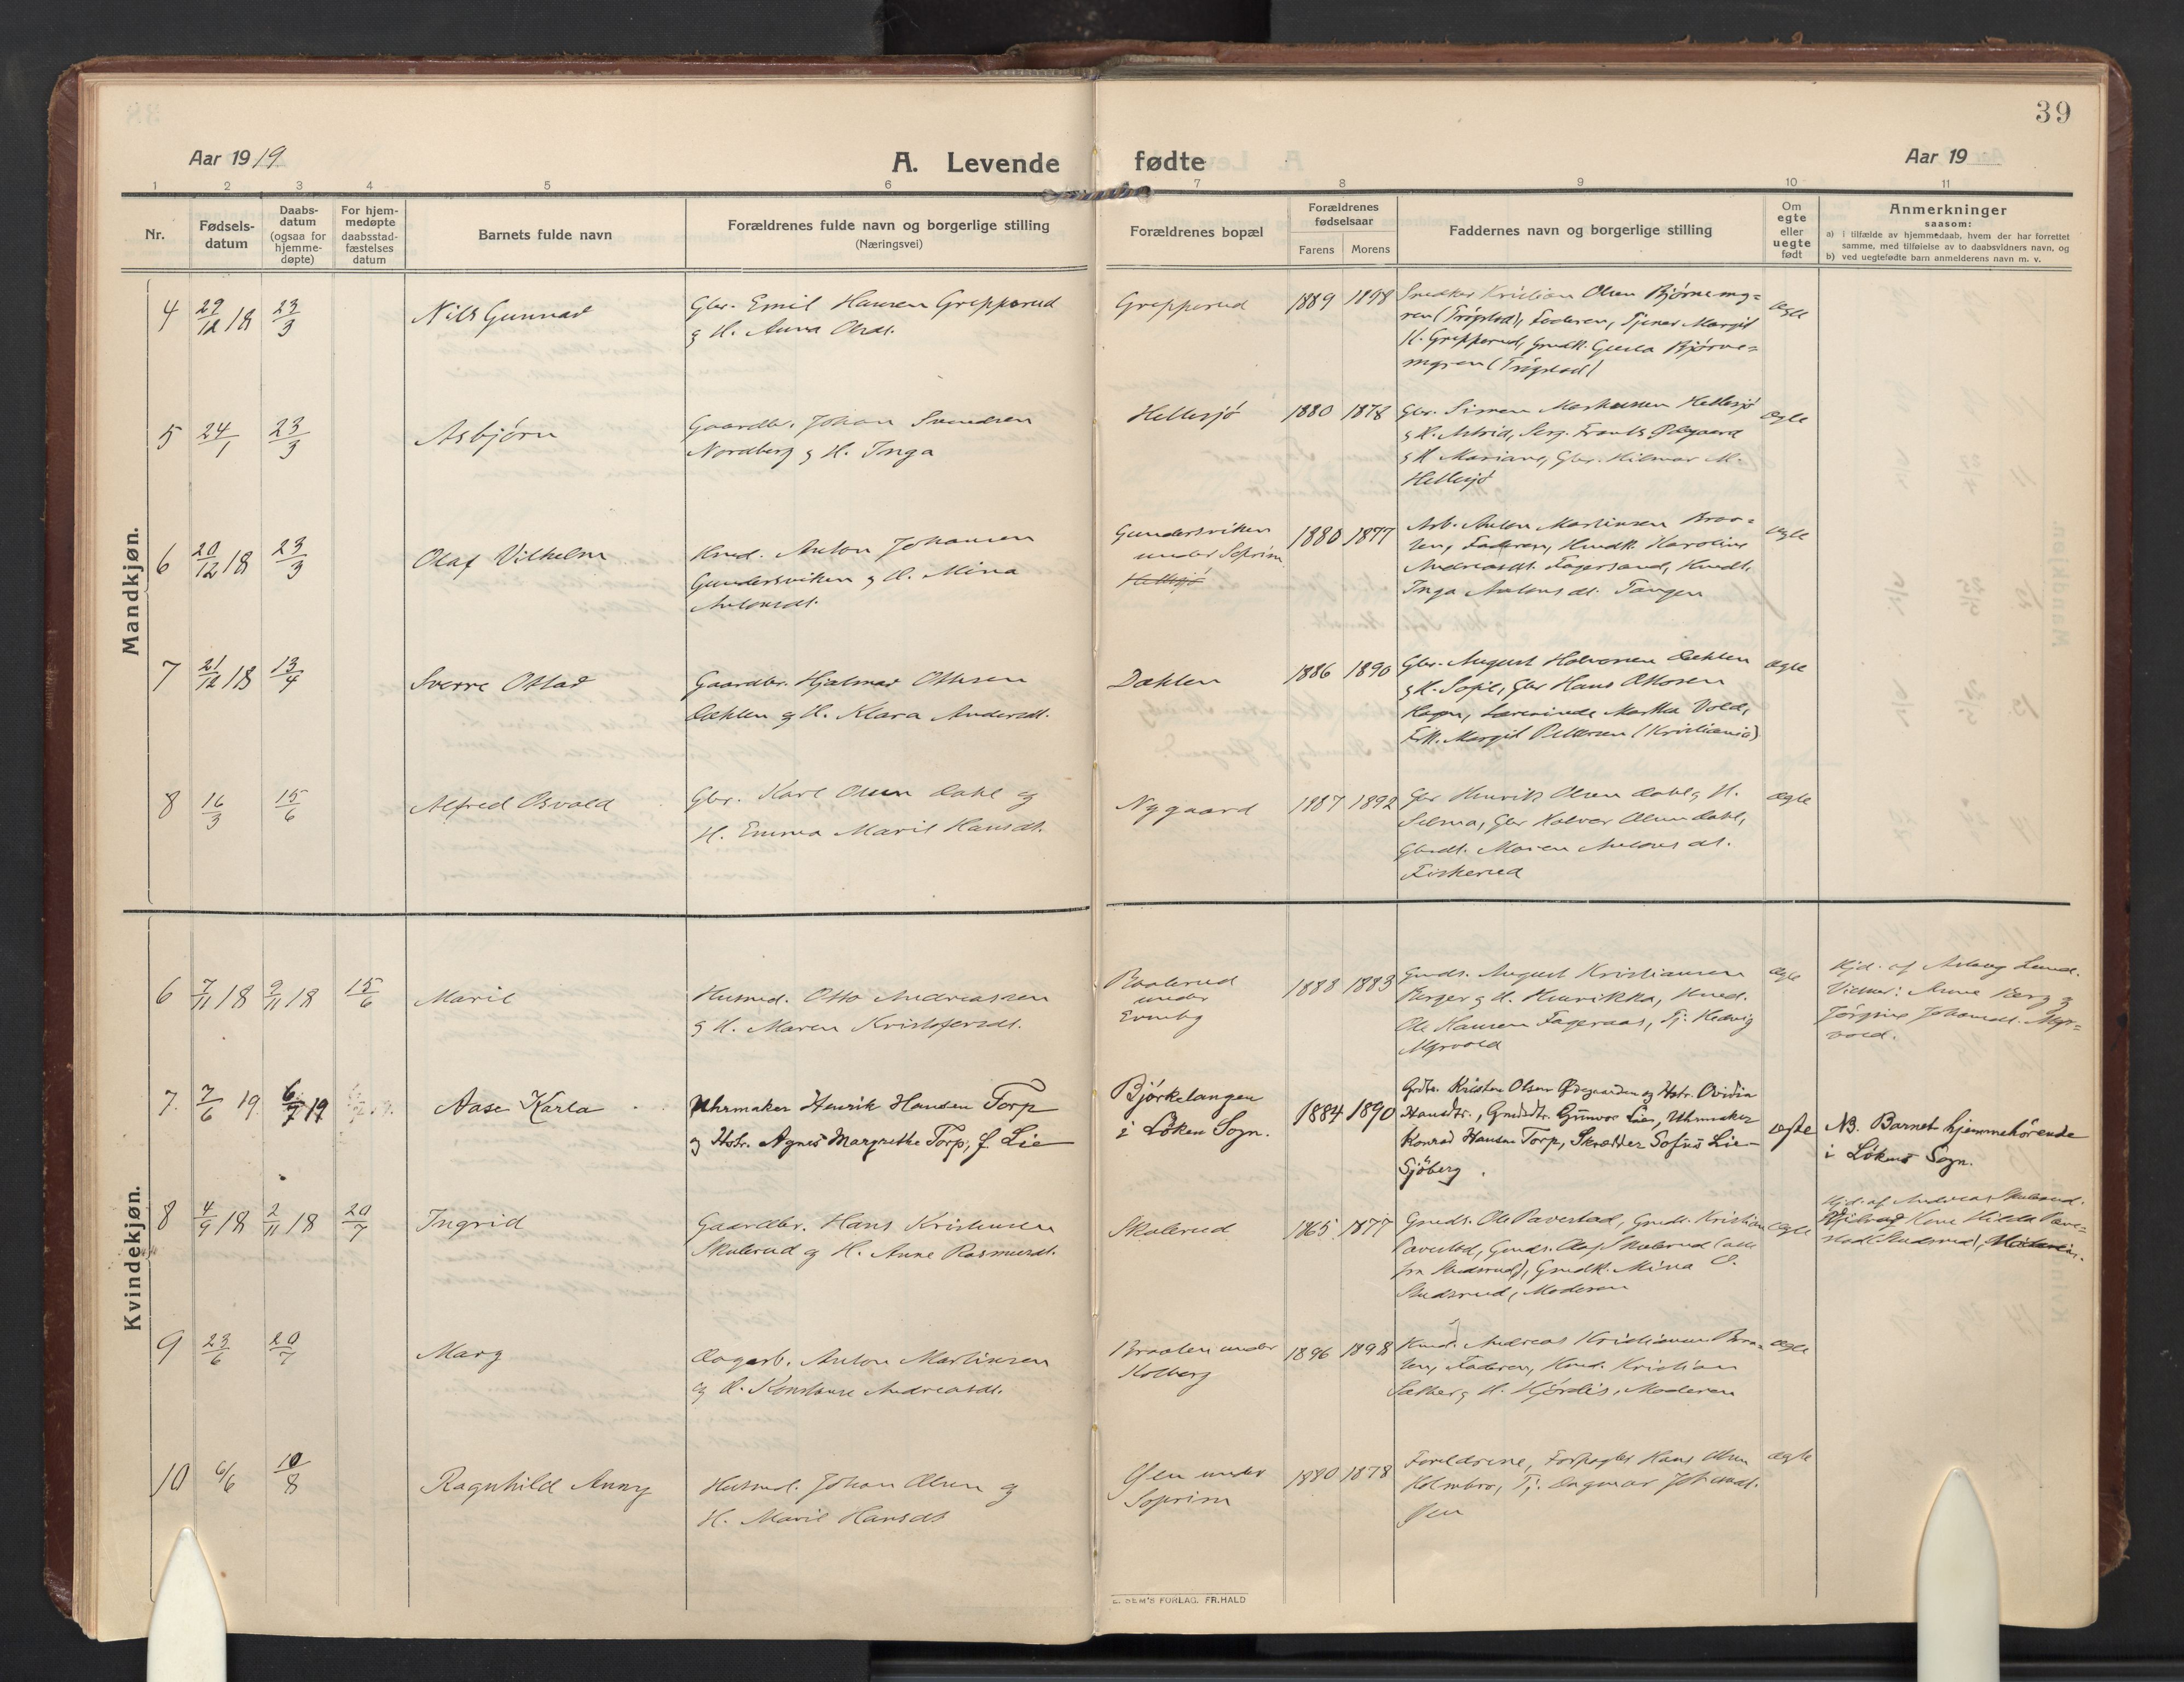 39
Aar 1919
A. Levende fødte
Aar 19
1 2 3 4 5 6 7 8 9 10 11
Nr.
Fødsels-
datum
Daabs-
datum
(ogsaa for
hjemme-
døpte)
For hjem-
medøpte
daabsstad-
fæstelses
datum
Barnets fulde navn
Forældrenes fulde navn og borgerlige stilling
(Næringsvei)
Forældrenes bopæl
Forældrenes
fødselsaar
Farens
Morens
Faddernes navn og borgerlige stilling
Om
egte
eller
uegte
født
Anmerkninger
saasom:
a) i tilfælde av hjemmedaab, hvem der har forrettet
samme, med tilføielse av to daabsvidners navn, og
b) ved uegtefødte barn anmelderens navn m. v.
Mandkjøn.
4 29/12 18 23/3
Nils Gunnar
Gbr. Emil Hansen Grepperud
g H. Anna Olsdt.
Grepperud
1889 1898
Snedker Kristian Olsen Bjørnemy=
ren (Trøgstad), Faderen, Tjener Margit
H. Grepperud, Gusta Bjørne=
myren (Trøgstad)
Ægte
5 24/1 23/3
Asbjørn
Gaardbr. Johan Svendsen
Nordberg g H. Inga
Hellesjø
1880 1878
Gbr. Simen Hellesjø
g H. Astrid, Serg. Frants Ødegaard
g H. Mariane, Gbr. Hilmar M.
Hellesjø
Ægte
6 20/12 18 23/3
Olaf Vilhelm
Hmd. Anton Johansen
Gundersviken g H. Mina
Antonsdt.
Gundersviken
under Soprim
Hellesjø
1880 1877
Arb. Anton Martinsen Braa=
ten, Faderen, Hmdk. Karoline
Andreasdt. Fagersand, Hmdt.
Inga Antonsdt. Tangen
Ægte
7 21/12 18 13/4
Sverre Ottar
Gaardbr. Hjalmar Ottesen
Dæhlen g H. Klara Andersdt.
Dæhlen
1886 1890
Gbr. August Halvorsen Dæhlen
g H. Sofie, Gbr Hans Ottosen
Hagen, Lærerinde Martha Vold,
Frk. Margit Pettersen (Kristiania)
Ægte
8 16/3 15/6
Alfred Osvald
Gbr. Karl Olsen Dahl og
H. Emma Marie Hansdt.
Nygaard
1887 1892
Gbr Henrik Olsen Dahl g H.
Selma, Gbr Halvor Olsen Dahl,
Gbrdt. Maren Antonsdt.
Fiskerud
Ægte
Kvindekjøn.
6 7/11 18 9/11 18 15/6
Marie
Husmd. Otto Andreassen
g H. Maren Kristofersdt.
Baalerud
under
Evenby
1888 1883
Gmds. August Kristiansen
Berger g H. Henrikka, Hmd.
Ole Hansen Fageraas, Tj. Hedvig
Myrvold
Ægte
Hjd. af Aslaug Lund.
Vidner: Anne Berg g
Jørgine Johansdt. Myr=
vold.
7. 7/6 19 6/7 19
Aase Karla
Uhrmaker Henrik Hansen Torp
og Hstr. Agnes Margrethe Torp, f. Lie
Bjørkelangen
i Løken Sogn.
1884 1890
Grdbr. Kristen Olsen Ødegaarden og Hstr. Ovidia
Hansdtr., Grdmdtr. Gunvor Lie, Uhrmaker
Konrad Hansen Torp, Skrædder Sofus Lie
Sjöberg.
egte
NB. Barnet hjemmehørende
i Løkens Sogn.
8 4/9 18 2/11 18 20/7
Ingrid
Gaardbr. Hans Kristensen
Skulerud og H. Anne Rasmusdt.
Skulerud
1865 1877
Gmds. Ole Pavestad, Gmdt. Kristian
Pavestad, Gmds. Olaf Skulerud (alle
fra Studsrud), Gmdk. Mina O.
Studsrud, Moderen
Ægte
Hjd. af Andreas Skulerud.
Kone Hilda Pave=
stad (Studsrud),
9 23/6 20/7
Mary
Dagarb. Anton Martinsen
og H. Konstanse Andreasdt.
Braaten under
Kolberg
1896 1898
Hmd. Andreas Kristiansen Braa=
ten, Faderen, Hmd. Kristian
Sæther g H. Hjørdis, Moderen
Ægte
10 6/6 10/8
Ragnhild Anny
Husmd. Johan Olsen og
H. Marie Hansdt
Øien under
Soprim
1880 1878
Foreldrene, Forpagter Hans Olsen
Holmbro, Tj. Dagmar Johansdt.
Øien
Ægte
E. SEM'S FORLAG. FR.HALD